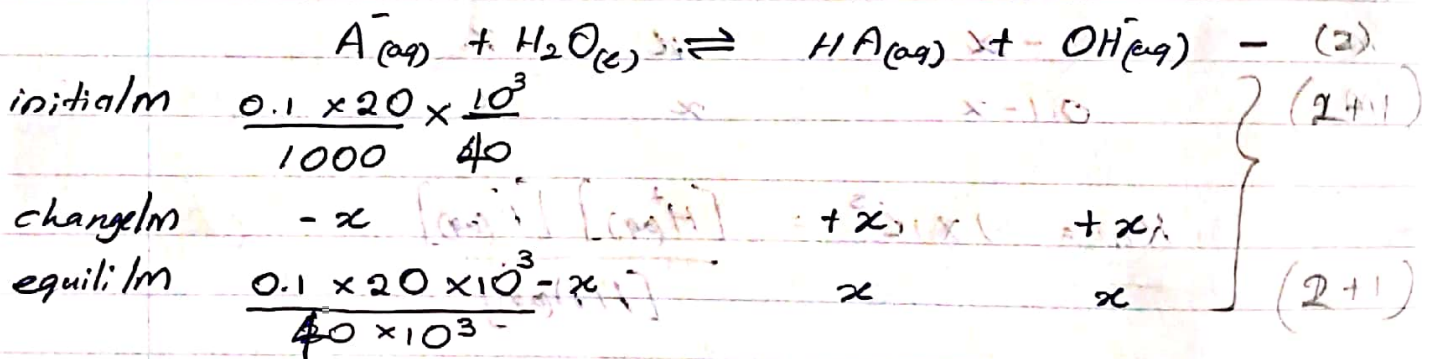 A⁻(aq) + H₂O(l) ⇌ HA(aq) + OH⁻(aq) – (2)
initial/m 0.1 × 20 / 1000 × 10³ / 40 (2+1)
change/m - x + x + x
equili/m 0.1 × 20 × 10³ / 40 × 10³ - x x x (2+1)